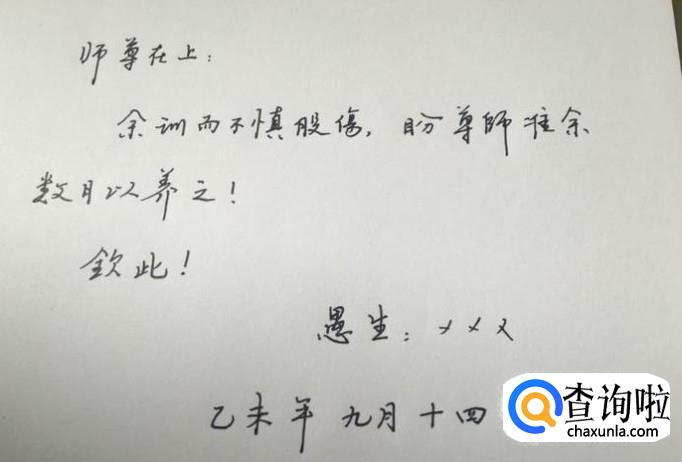 师尊在上：
余训而不慎股傷，盼尊師准余
数月以养之！
欽此！
愚生：×××
乙未年 九月十四
查询啦
chaxunla.com